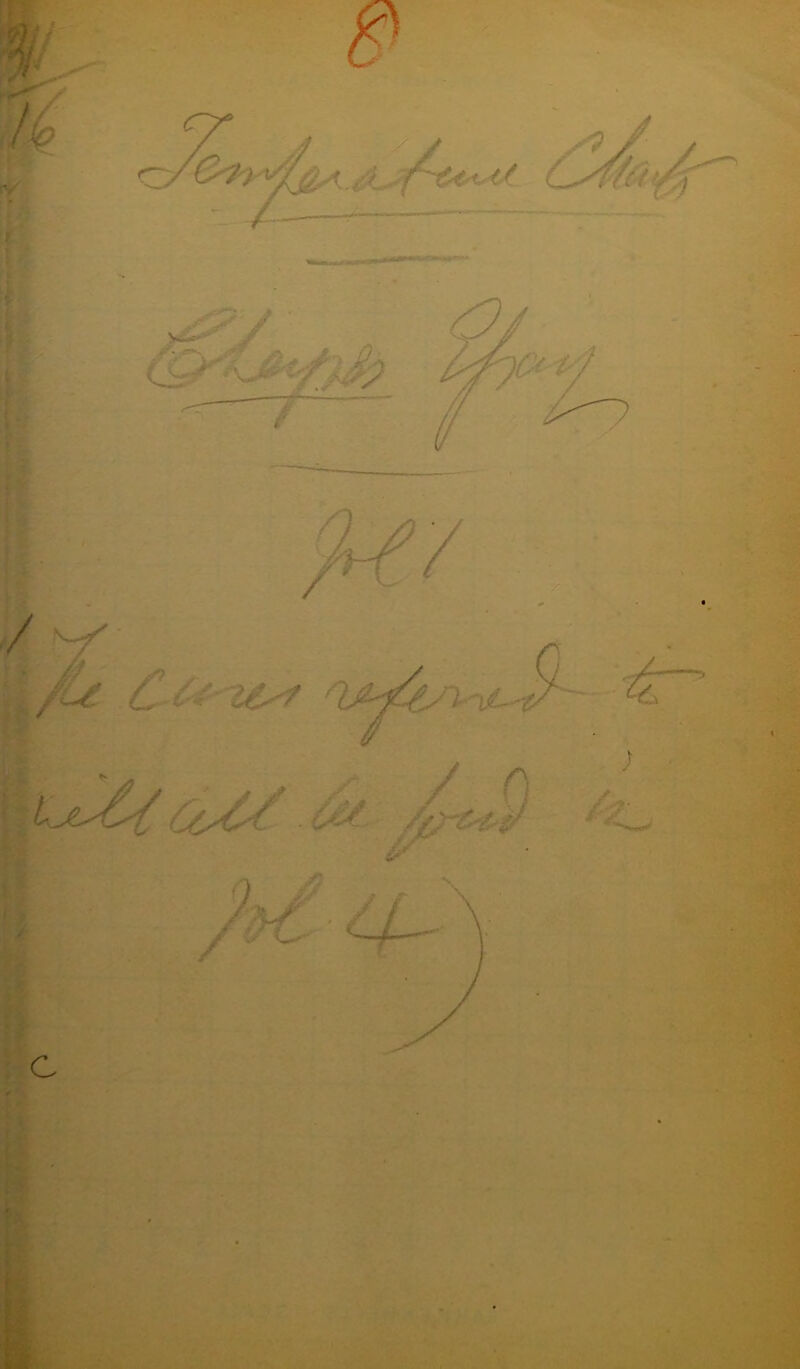 8
16
Temperature Charts
Vol 1
The Cases referred to
will all be found in
Vol 4)
C